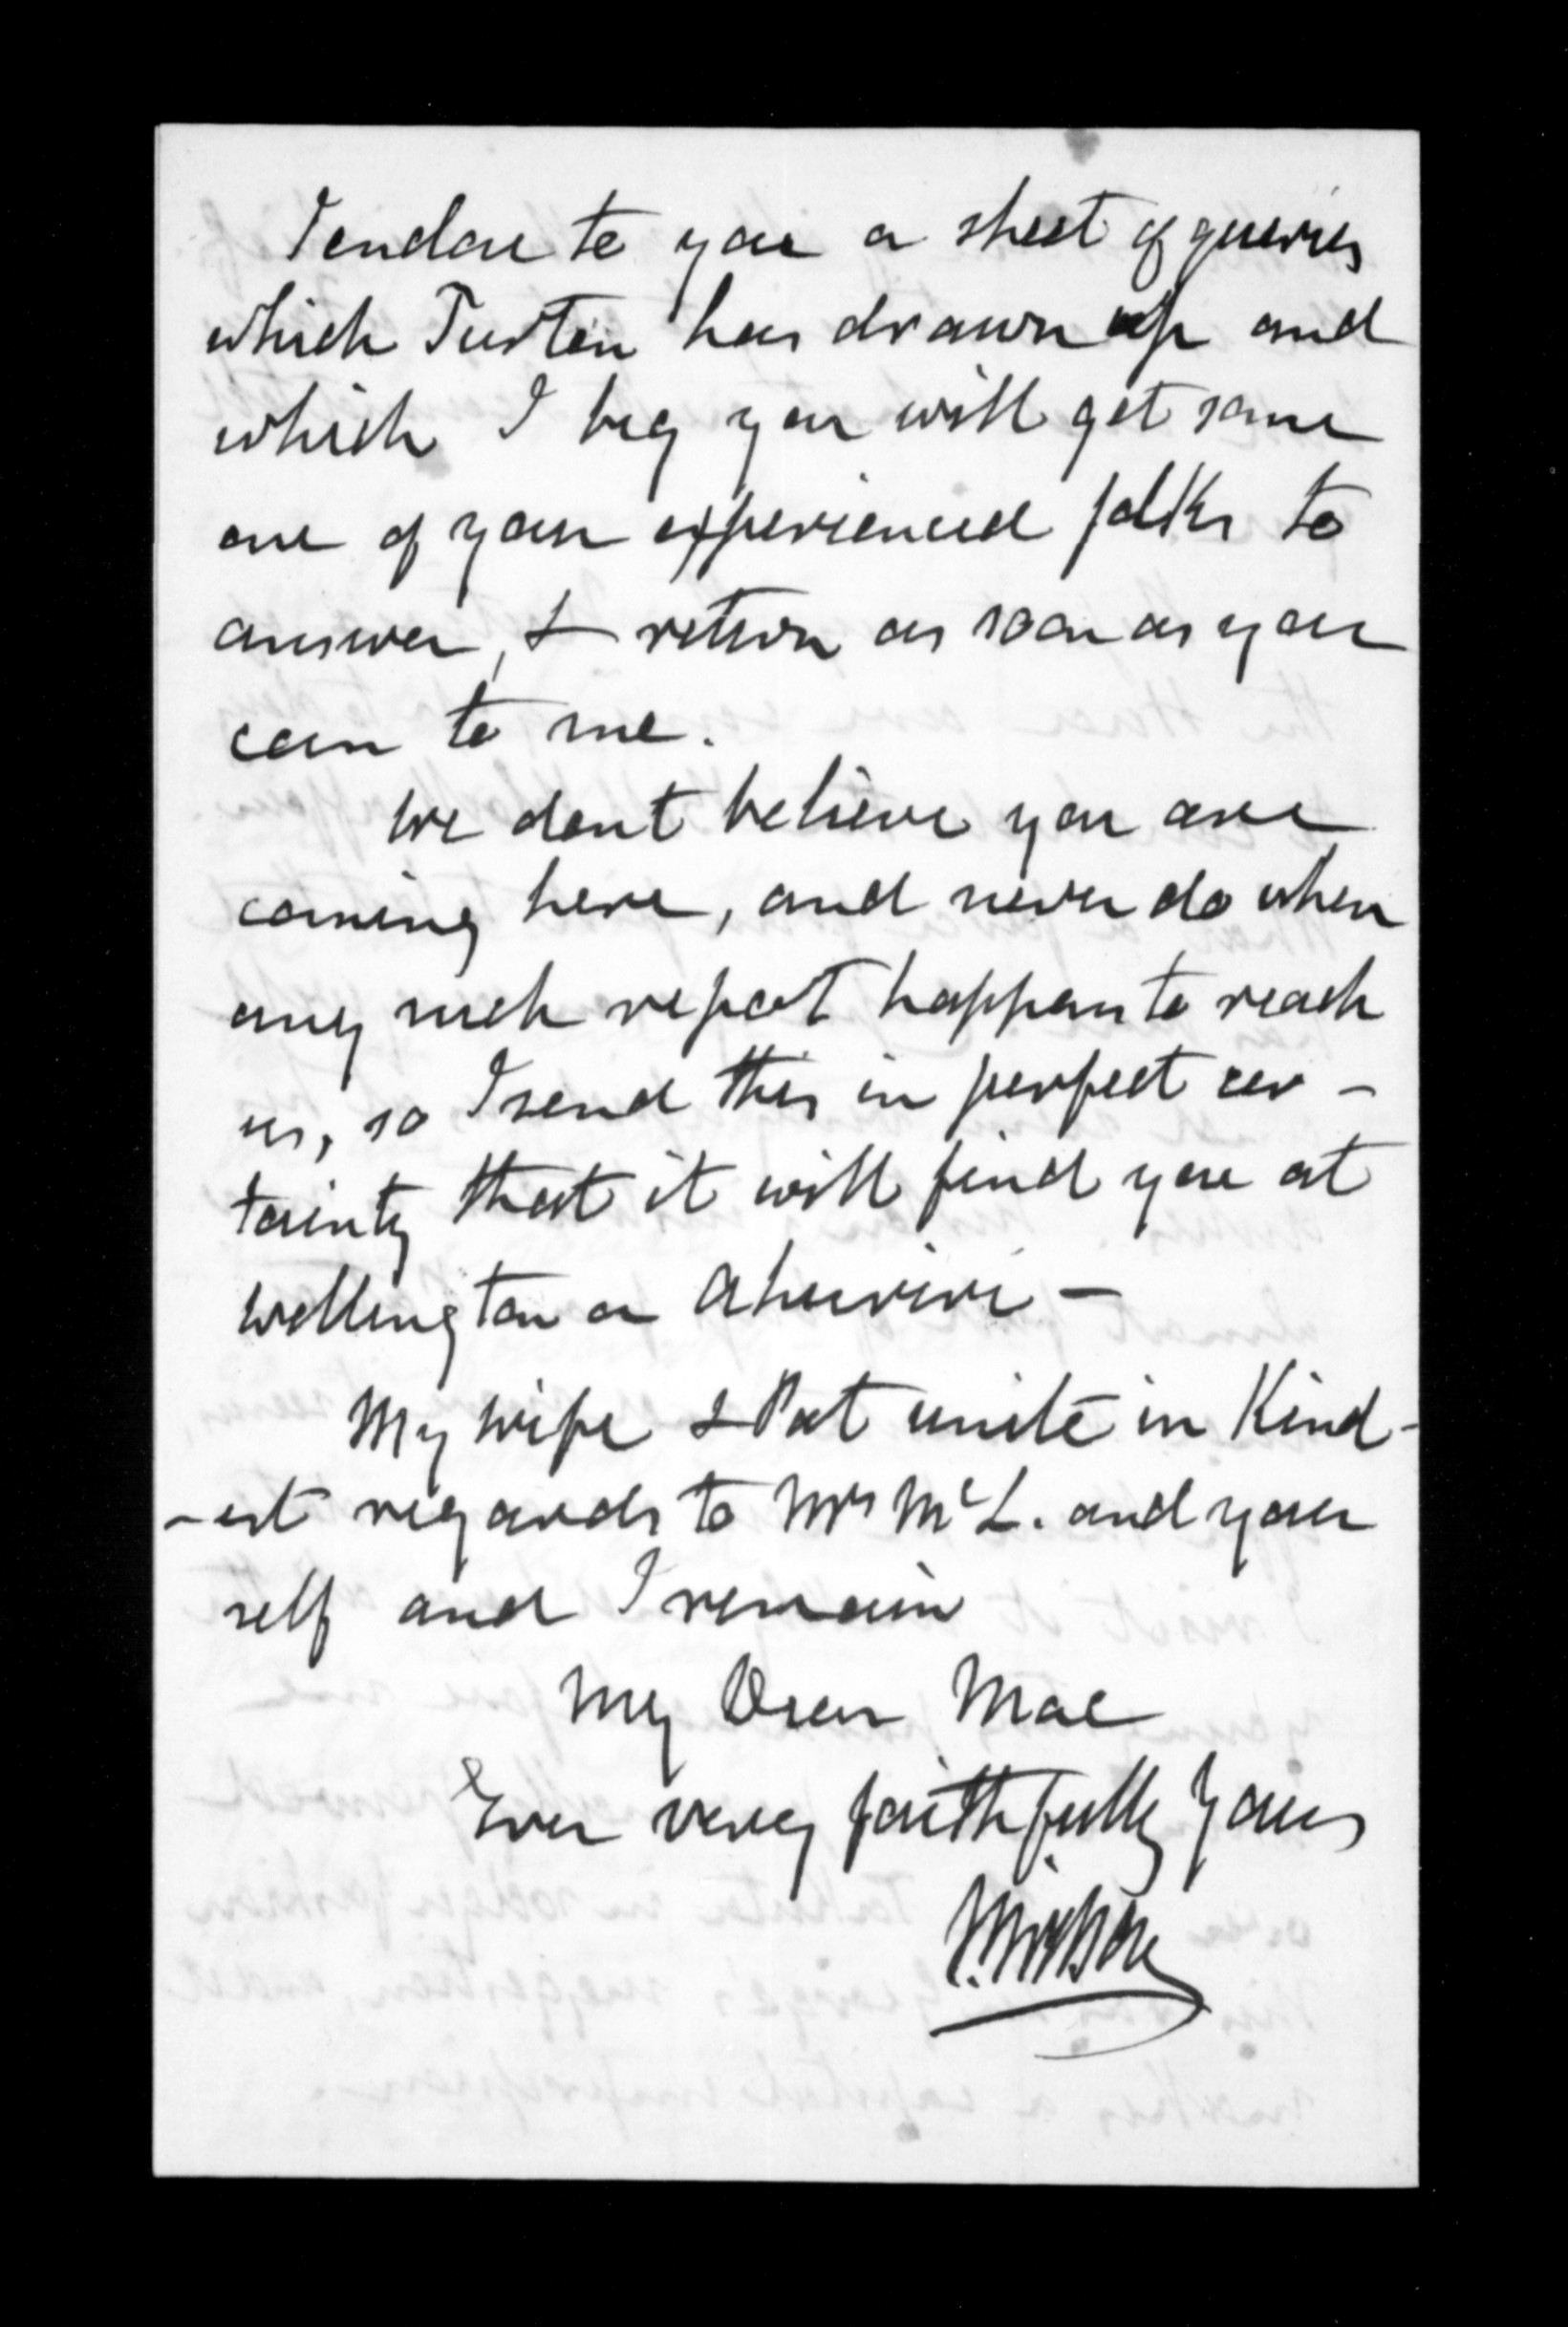 I enclose to you a sheet of queries
which Turton has drawn up and
which I beg you will get some
one of your experienced folks to
answer, & return as soon as you
can to me.
We dont believe you are
coming here, and never do when
any such report happens to reach
us, so I send this in perfect cer -
tainty that it will find you at
Wellington or Ahuriri -
My wife & Pat unite in Kind-
-est regards to Mrs McL. and your
self and I remain
My Dear Mac
Ever very faithfully Yours